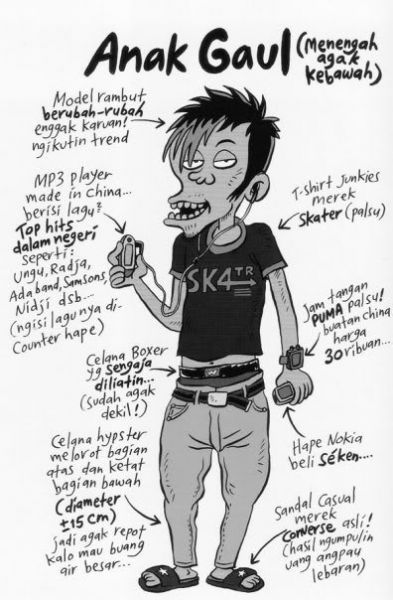 Anak Gaul (Menengah
agak
kebawah)
Model rambut
berubah-rubah
enggak karuan!
ngikutin trend
MP3 player
made in China...
berisi lagu2
Top hits
dalam negeri
seperti:
Ungu, Radja,
Ada band, Samsons,
Nidji dsb....
(ngisi lagunya di-
Counter hape)
T-shirt Junkies
merek
Skater (palsu)
SK4TR
Jam tangan
PUMA palsu!
buatan china
harga
30 ribuan...
Celana Boxer
yg sengaja
diliatin...
(sudah agak
dekil!)
Hape Nokia
beli séken....
Celana hypster
melorot bagian
atas dan ketat
bagian bawah
(diameter
±15 cm)
jadi agak repot
kalo mau buang
air besar...
Sandal Casual
merek
converse asli!
(hasil ngumpulin
uang angpau
lebaran)